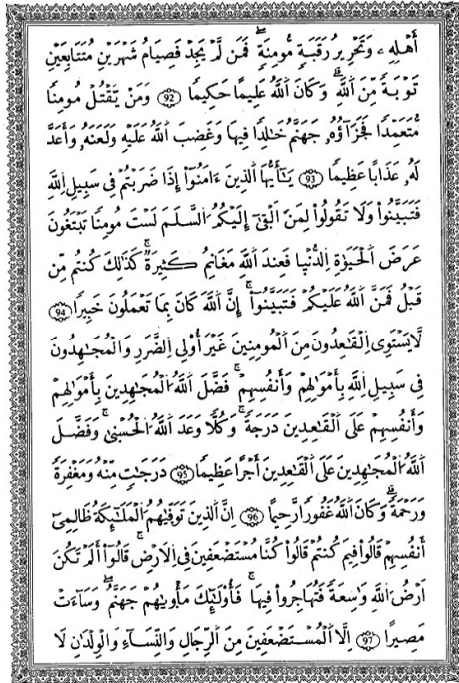 أَهْلِهِۦ وَتَحْرِيرُ رَقَبَةٍ مُّومِنَةٍ فَمَن لَّمْ يَجِدْ فَصِيَامُ شَهْرَيْنِ مُتَتَابِعَيْنِ
تَوْبَةً مِّنَ اَللَّهِ وَكَانَ اَللَّهُ عَلِيمًا حَكِيمًا 92 وَمَنْ يَّقْتُلْ مُومِنًا
مُّتَعَمِّدًا فَجَزَآؤُهُۥ جَهَنَّمُ خَٰلِدًا فِيهَا وَغَضِبَ اَللَّهُ عَلَيْهِ وَلَعَنَهُۥ وَأَعَدَّ
لَهُۥ عَذَابًا عَظِيمًا 93 يَٰٓأَيُّهَا اَلَّذِينَ ءَامَنُوٓاْ إِذَا ضَرَبْتُمْ فِى سَبِيلِ اِللَّهِ
فَتَبَيَّنُواْ وَلَا تَقُولُواْ لِمَنْ أَلْقَىٰٓ إِلَيْكُمُ اُلسَّلَمَ لَسْتَ مُومِنًا تَبْتَغُونَ
عَرَضَ اَلْحَيَوٰةِ اِلدُّنْيَا فَعِندَ اَللَّهِ مَغَانِمُ كَثِيرَةٌ كَذَٰلِكَ كُنتُم مِّن
قَبْلُ فَمَنَّ اَللَّهُ عَلَيْكُمْ فَتَبَيَّنُوٓاْ إِنَّ اَللَّهَ كَانَ بِمَا تَعْمَلُونَ خَبِيرًا 94
لَّا يَسْتَوِى اِلْقَٰعِدُونَ مِنَ اَلْمُومِنِينَ غَيْرَ أُوْلِى اِلضَّرَرِ وَالْمُجَٰهِدُونَ
فِى سَبِيلِ اِللَّهِ بِأَمْوَٰلِهِمْ وَأَنفُسِهِمْ فَضَّلَ اَللَّهُ اُلْمُجَٰهِدِينَ بِأَمْوَٰلِهِمْ
وَأَنفُسِهِمْ عَلَى اَلْقَٰعِدِينَ دَرَجَةً وَكُلًّا وَعَدَ اَللَّهُ اُلْحُسْنَىٰ وَفَضَّلَ
اَللَّهُ اُلْمُجَٰهِدِينَ عَلَى اَلْقَٰعِدِينَ أَجْرًا عَظِيمًا 95 دَرَجَٰتٍ مِّنْهُ وَمَغْفِرَةً
وَرَحْمَةً وَكَانَ اَللَّهُ غَفُورًا رَّحِيمًا 96 إِنَّ اَلَّذِينَ تَوَفَّىٰهُمُ اُلْمَلَٰٓئِكَةُ ظَالِمِىٓ
أَنفُسِهِمْ قَالُواْ فِيمَ كُنتُمْ قَالُواْ كُنَّا مُسْتَضْعَفِينَ فِى اِلَارْضِ قَالُوٓاْ أَلَمْ تَكُنَ
اَرْضُ اُللَّهِ وَٰسِعَةً فَتُهَاجِرُواْ فِيهَا فَأُوْلَٰٓئِكَ مَأْوَىٰهُمْ جَهَنَّمُ وَسَآءَتْ
مَصِيرًا 97 اِلَّا اَلْمُسْتَضْعَفِينَ مِنَ اَلرِّجَالِ وَالنِّسَآءِ وَالْوِلْدَٰنِ لَا